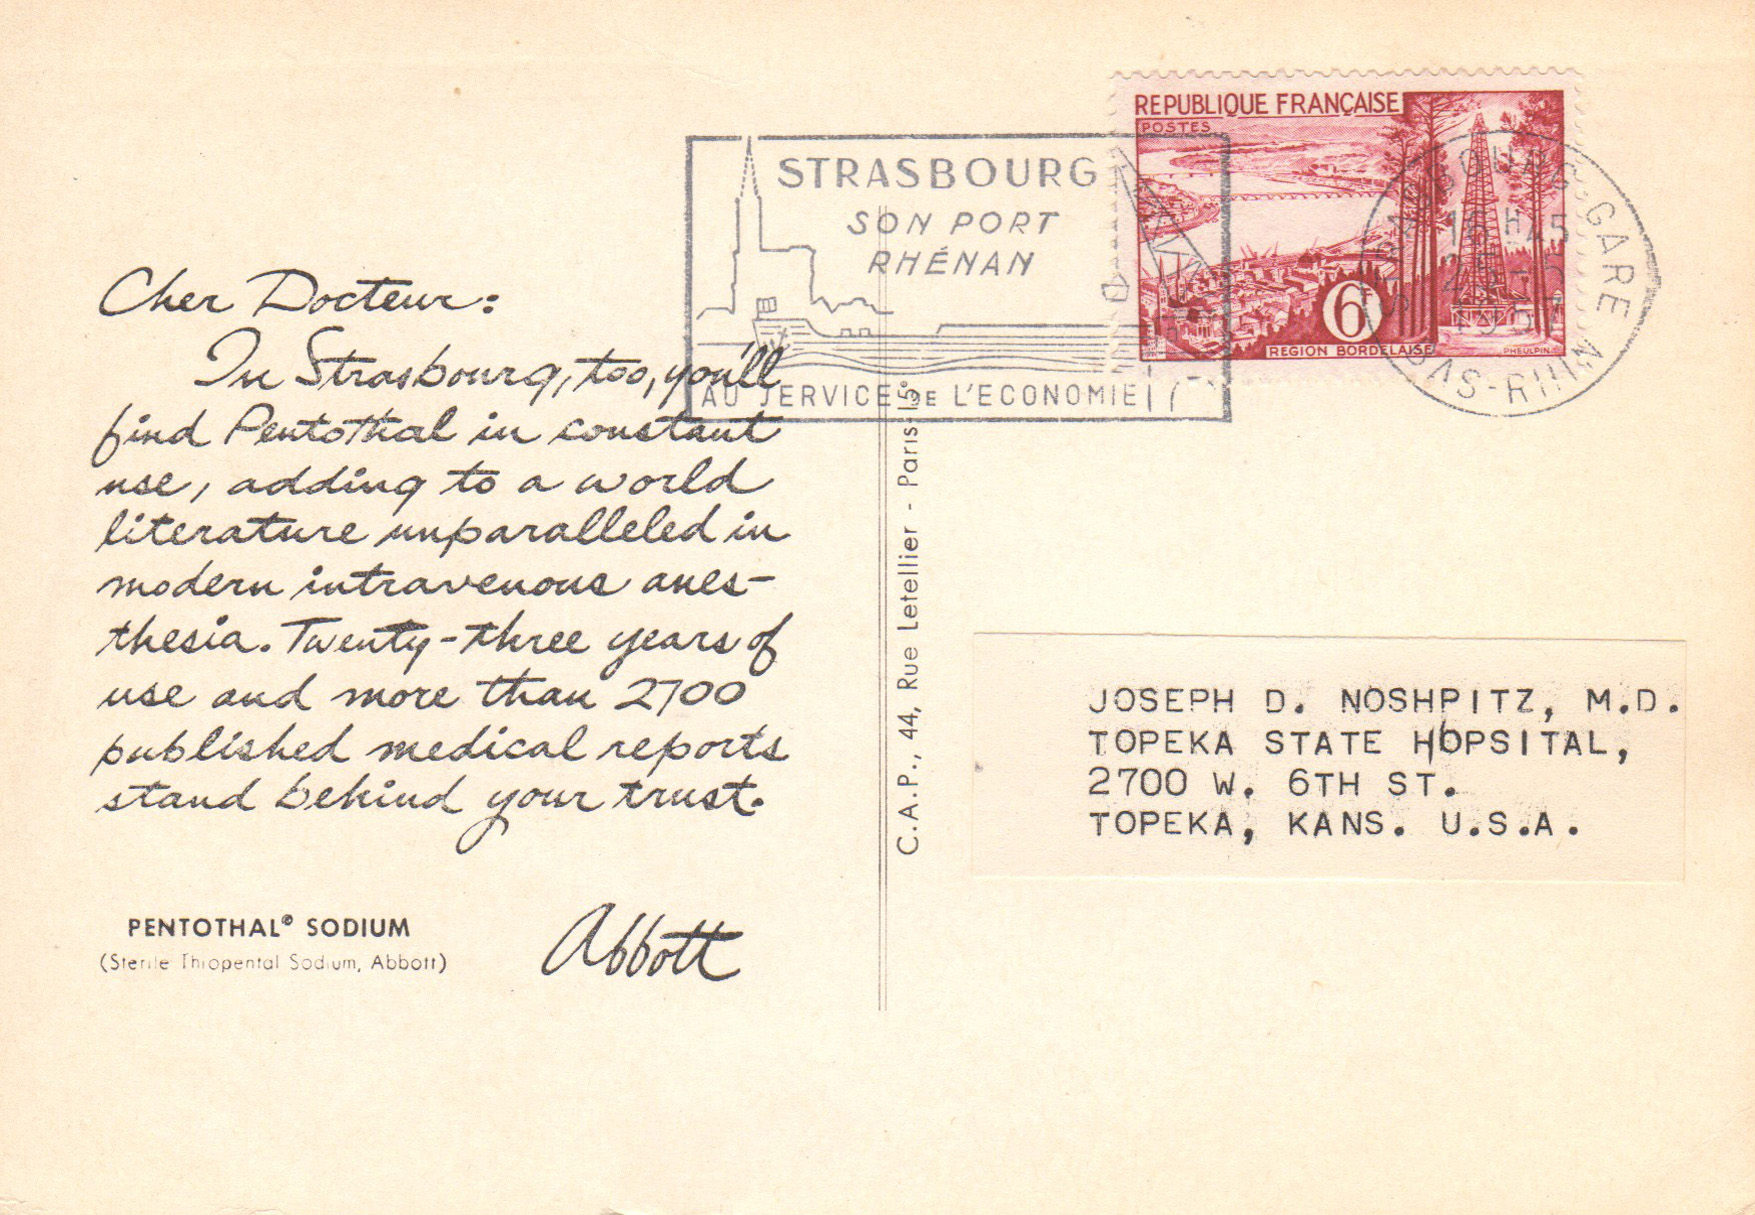 REPUBLIQUE FRANÇAISE
POSTES
6
REGION BORDELAISE
PHEULPIN
STRASBOURG
SON PORT
RHÉNAN
AU SERVICE DE L'ECONOMIE
STRASBOURG-GARE
BAS-RHIN
Cher Docteur:
In Strasbourg, too, you'll
find Pentothal in constant
use, adding to a world
literature unparalleled in
modern intravenous anes-
thesia. Twenty-three years of
use and more than 2700
published medical reports
stand behind your trust.
Abbott
PENTOTHAL® SODIUM
(Sterile Thiopental Sodium, Abbott)
C.A.P., 44, Rue Letellier - Paris-15e
JOSEPH D. NOSHPITZ, M.D.
TOPEKA STATE HOPSITAL,
2700 W. 6TH ST.
TOPEKA, KANS. U.S.A.